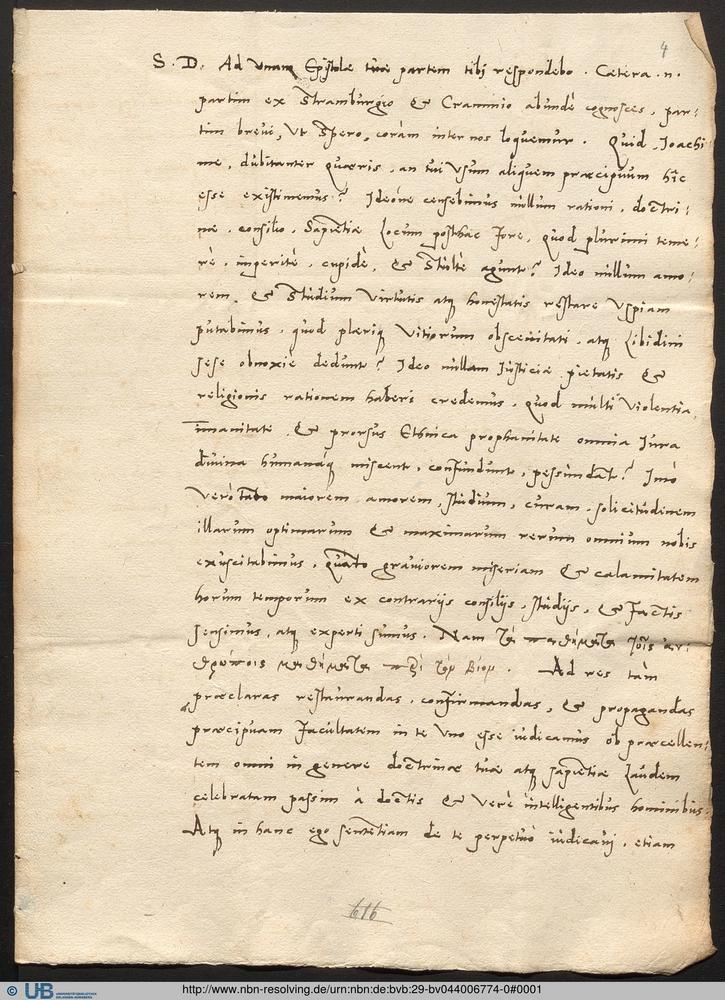 4
S. D. Ad unam Epistolæ tuæ partem tibj respondebo. Cætera .n.
partim ex Stramburgio & Crammio abundè cognosces, par-
tim brevi, ut spero, coràm inter nos loquemur. Quid, Joachi-
me, dubitanter quæris, an tui usum aliquem præcipuum hîc
esse existimemus? Ideóne censebimus nullum rationi, doctri-
næ, consilio, Sapiẽtiæ Locum posthac fore, quod plurimi teme-
rè, imperitè, cupidè, & stultè agunt? Ideo nullum amo-
rem, & studium virtutis atq honestatis restare uspiam
putabimus, quod pleriq vitiorum obscenitati, atq Libidini
sese obnoxiè dedunt? Ideo nullam Justiciæ pietatis &
religionis rationem haberi credemus, quod multi violentia
immanitate & prorsus Ethnica prophanitate omnia Jura
divina humanáq miscent, confundunt, pessundãt? Imò
verò tãto maiorem amorem, studium, curam, solicitudinem
illarum optimarum & maximarum rerum omnium nobis
exuscitabimus, quãto graviorem miseriam & calamitatem
horum temporum ex contrarijs consilijs, studijs, & factis
sensimus, atq experti sumus. Nam τὰ παθήματα τοῖς ἀν-
θρώποις μαθήματα περὶ τὸν βίον. Ad res tàm
præclaras restaurandas, confirmandas, & propagandas
præcipuam facultatem in te uno esse iudicamus ob præcellen-
tem omni in genere doctrinæ tuæ atq sapiẽtiæ Laudem
celebratam passim à doctis & verè intelligentibus hominibus.
Atq in hanc ego sentẽtiam de te perpetuò iudicavj, etiam
616
© UB
UNIVERSITÄTSBIBLIOTHEK
ERLANGEN-NÜRNBERG
http://www.nbn-resolving.de/urn:nbn:de:bvb:29-bv044006774-0#0001